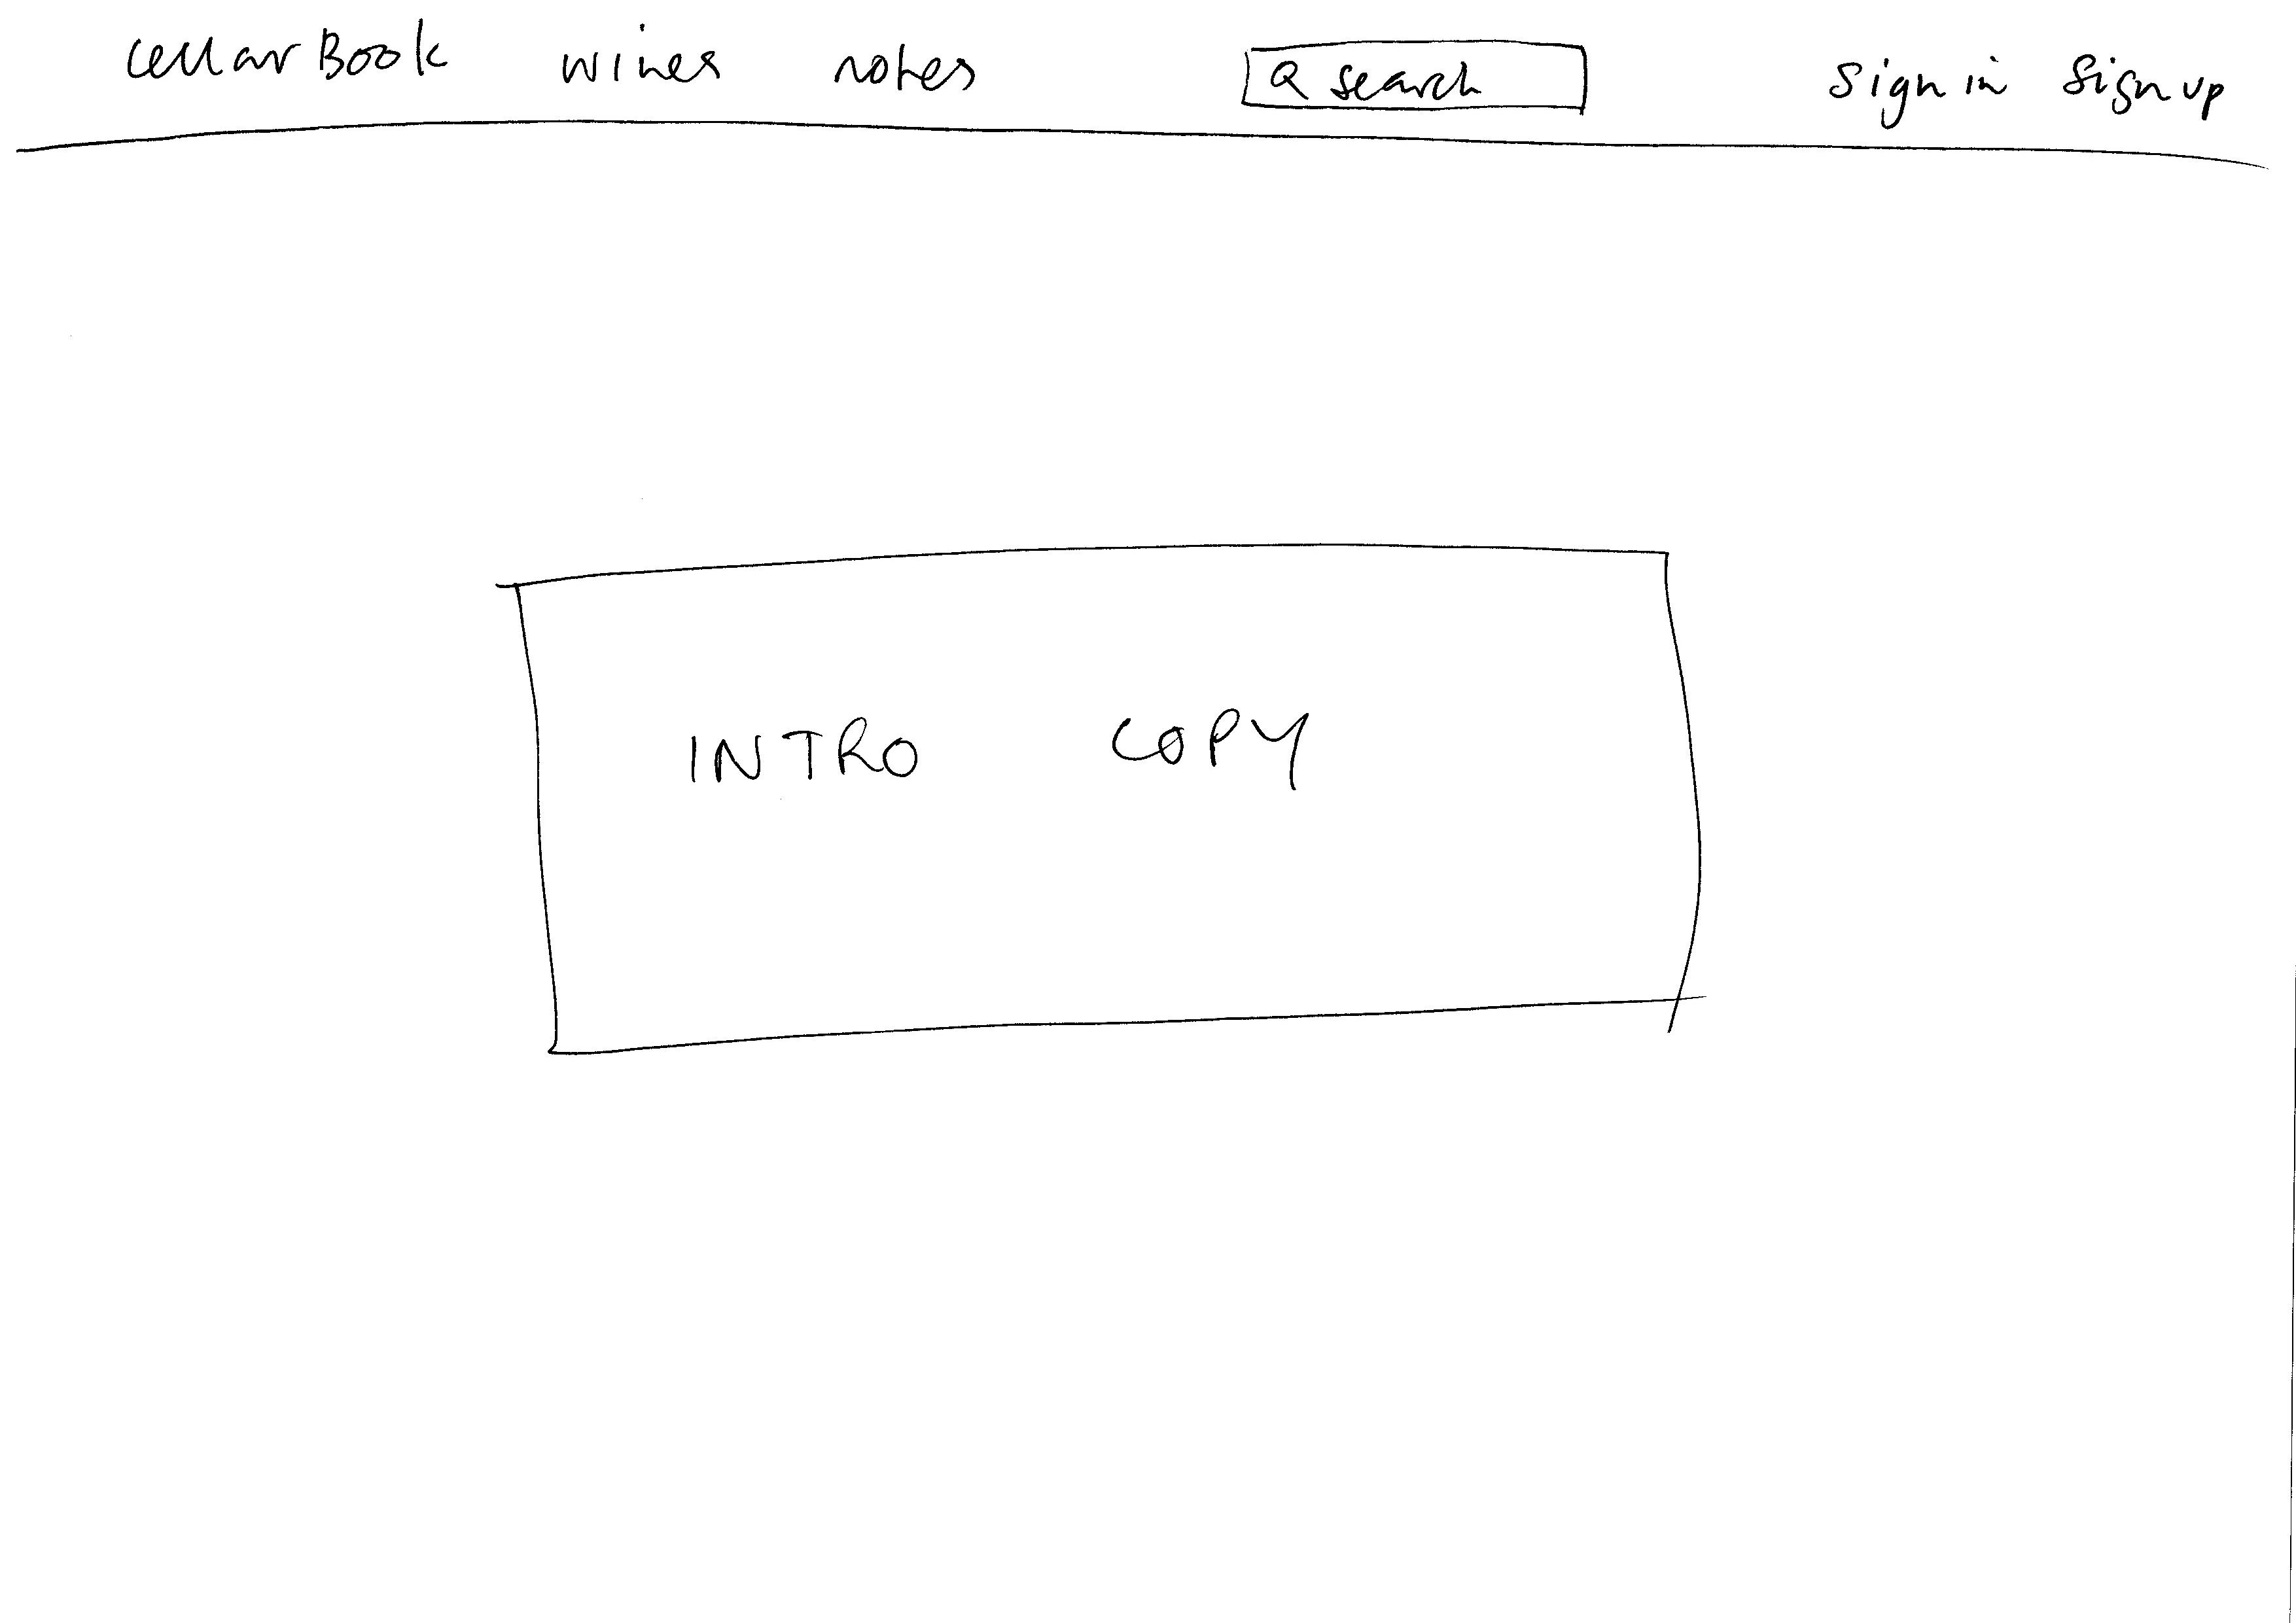 cellarBook wines notes search Sign in Sign up
INTRO COPY